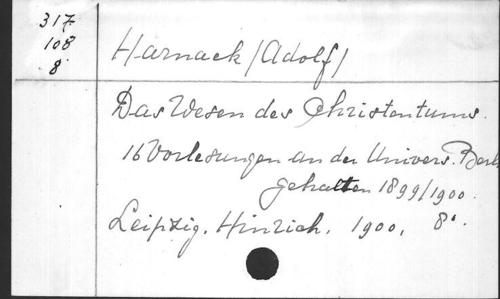 317
108
8
Harnack (Adolf)
Das Wesen des Christentums.
16 Vorlesungen an der Univers. Berl.
gehalten 1899/1900.
Leipzig. Hinrich. 1900. 8°.